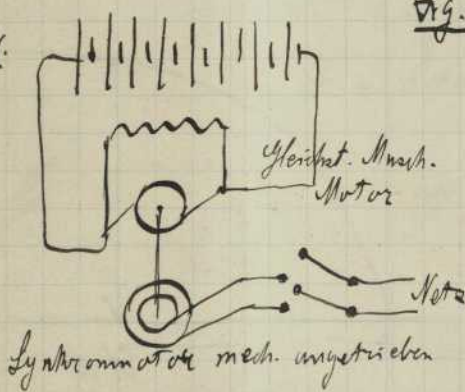 Gleichst. Masch.
Motor
Netz
Synkronmotor mech. angetrieben